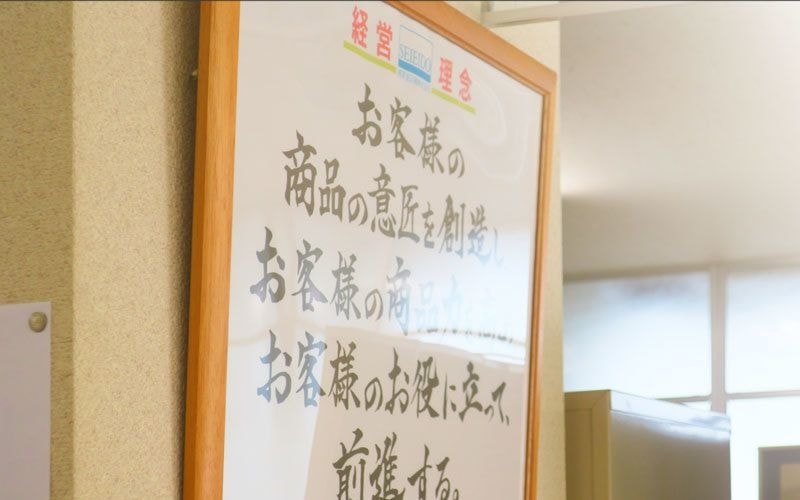 経営 SEIEIDO 理念
お客様の
商品の意匠を創造し
お客様の商品力を高め
お客様のお役に立って、
前進する。